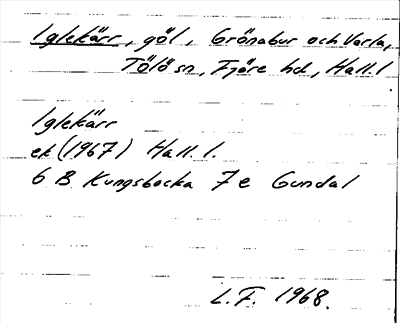 Iglekärr, göl, Grönabur och Varla,
Tölö sn, Fjäre hd, Hall. l
Iglekärr
ek (1967) Hall. l.
6 B Kungsbacka 7 e Gundal
L. F. 1968.